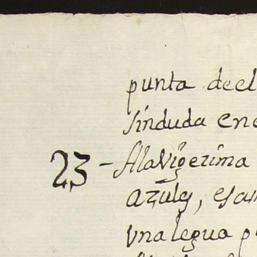 punta de el
sinduda ene
23 - A la Vigezima
azules, esam
Vna legua p